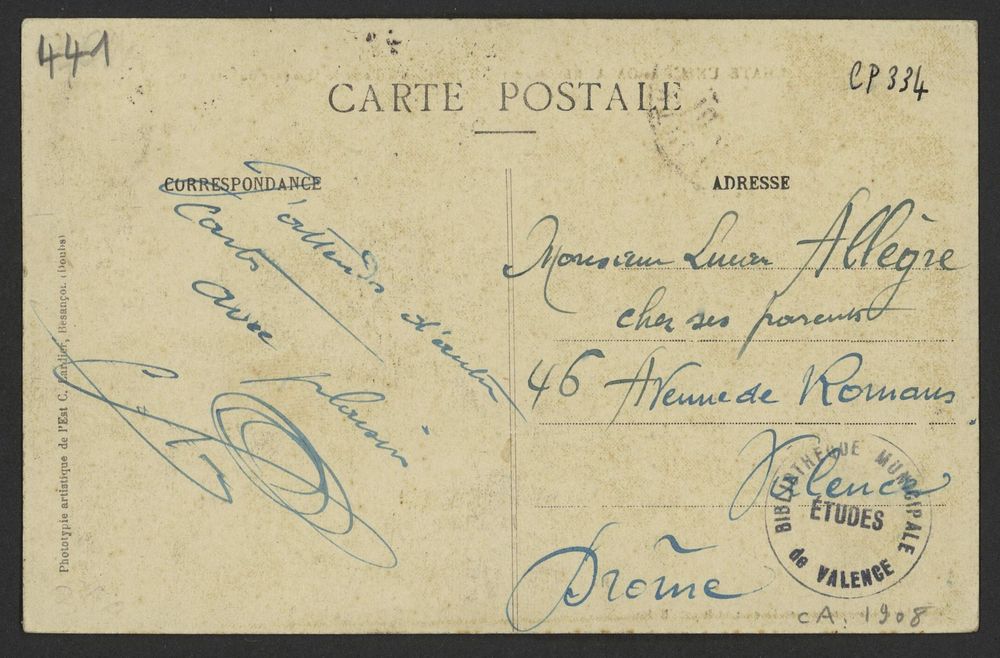 441
CP 334
CARTE POSTALE
CORRESPONDANCE
ADRESSE
J'attends d'autres
Cartes
avec plaisir
Monsieur Lucien Allègre
chez ses parents
46 Avenue de Romans
Valence
Drôme
BIBLIOTHEQUE MUNICIPALE
ÉTUDES
de VALENCE
CA. 1908
Phototypie artistique de l'Est C. Lardier, Besançon (Doubs)